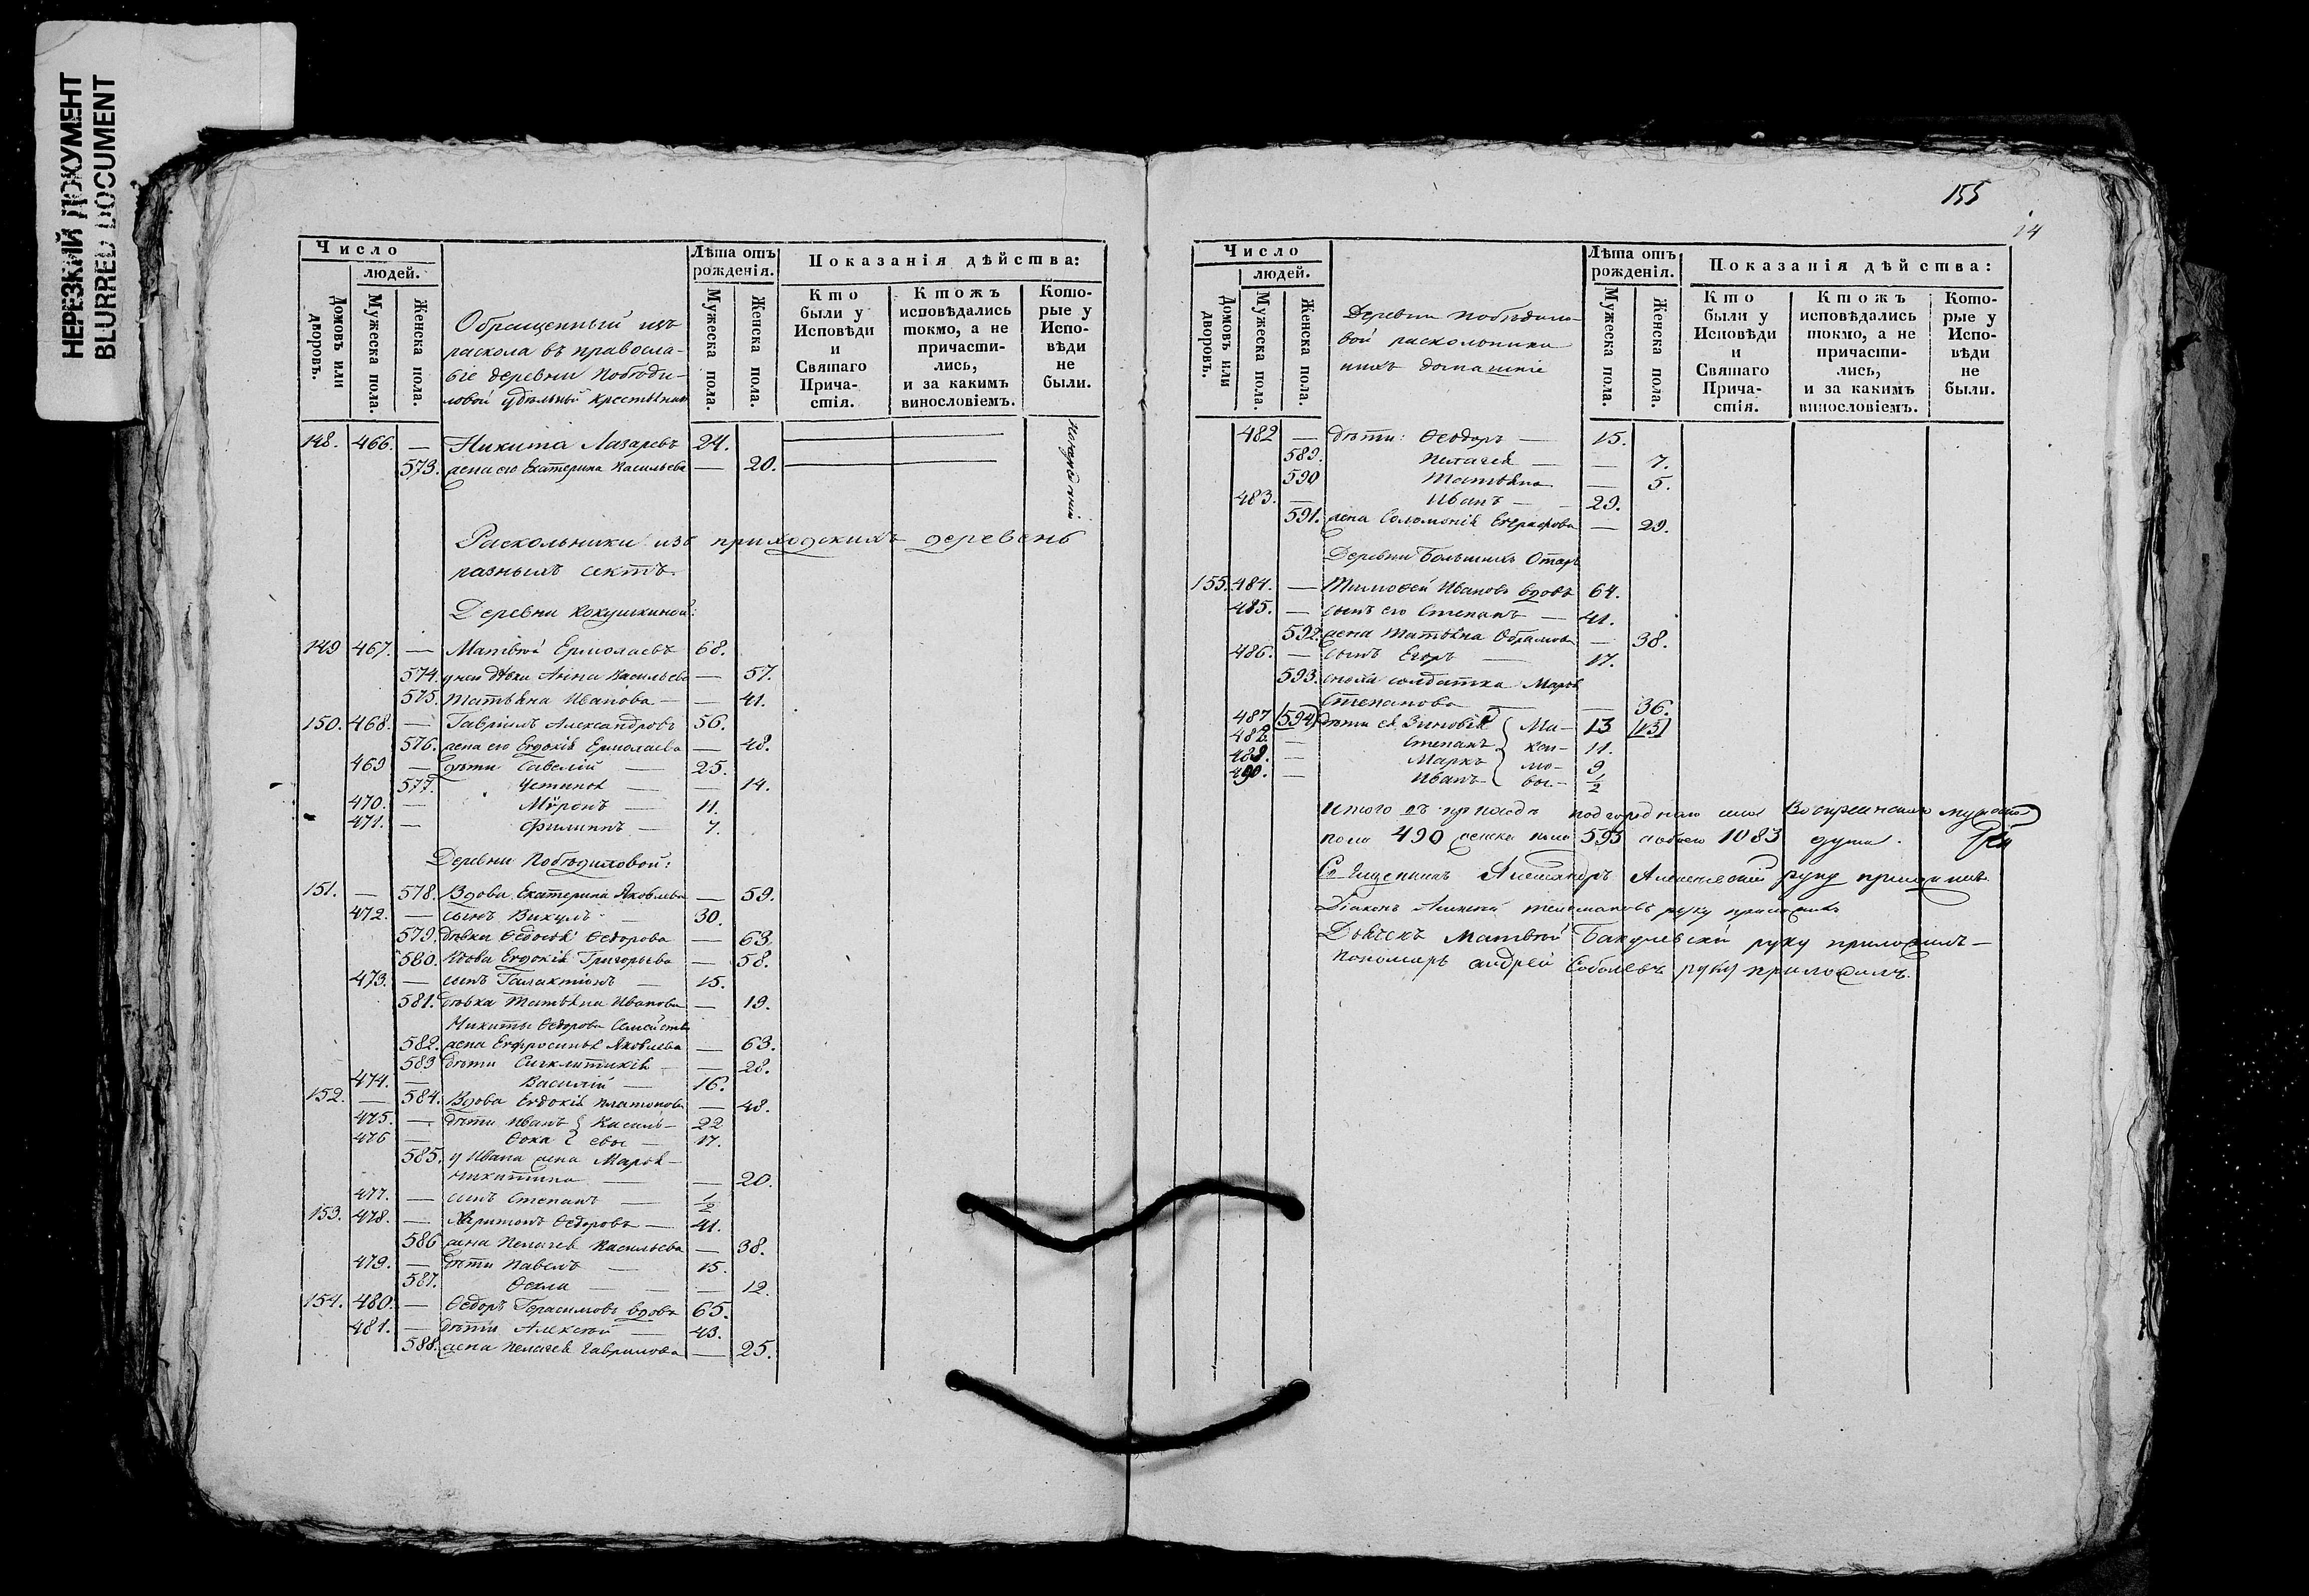 НЕРЕЗКИЙ ДОКУМЕНТ
BLURRED DOCUMENT
Число
людей.
Домовъ или дворовъ.
Мужеска пола.
Женска пола.
Обращенный изъ
раскола въ правосла-
віе деревни Побѣди-
ловой удѣльный крестьянин
Лѣта отъ рожденія.
Мужеска пола.
Женска пола.
Показанія дѣйства:
Кто были у Исповѣди и Святаго Прича-стія.
Ктожъ исповѣдались токмо, а не причасти-лись, и за какимъ винословіемъ.
Кото-рые у Испо-вѣди не были.
148. 466. — Никита Лазаревъ 24.
573. жена его Екатерина Васильева — 20.
Раскольники изъ приходскихъ деревень
разныхъ сектъ.
Деревни Кокушкиной:
149 467. — Матвѣй Ермолаевъ 68.
574. у них дѣвки Анна Васильева — 57.
575. Татьяна Иванова — — 41.
150. 468. — Гавріилъ Александровъ 56.
576. жена его Евдокія Ермолаева — 48.
469 — дѣти Савелій — 25.
577. Устинья — — 14.
470. — Миронъ — 11.
471. — Филиппъ — 7.
Деревни Побѣдиловой:
151. — 578. Вдова Екатерина Яковлева — 59.
472. — сынъ Викулъ — 30.
579. дѣвки Ѳедосья Ѳедорова — 63
580. Вдова Евдокія Григорьева — 58.
473. — сынъ Галактіонъ — 15.
581. дѣвка Татьяна Иванова — 19.
Никиты Ѳедорова Семейство
582. жена Евфросинья Яковлева — 63.
583 дѣти Сигклитикія — — 28.
474. — Василій — 16.
152. — 584. Вдова Евдокія Платонова — 48.
475. — дѣти Иванъ } Василь- 22
476 — Ѳока } евы — 17.
585. у Ивана жена Марья
Никитина — — 20.
477. — сынъ Степанъ — 1/2
153. 478. — Харитонъ Ѳедоровъ — 41.
586 жена Пелагея Васильева — 38.
479. — дѣти Павелъ — 15.
587. Ѳекла — — 12.
154. 480. — Ѳедоръ Герасимовъ вдовъ 65.
481. — дѣти Алексѣй — 43.
588. жена Пелагея Гаврилова — 25.
155
14
Число
людей.
Домовъ или дворовъ.
Мужеска пола.
Женска пола.
Деревни Побѣдило-
вой раскольники
нихъ домашніе
Лѣта отъ рожденія.
Мужеска пола.
Женска пола.
Показанія дѣйства:
Кто были у Исповѣди и Святаго Прича-стія.
Ктожъ исповѣдались токмо, а не причасти-лись, и за какимъ винословіемъ.
Кото-рые у Испо-вѣди не были.
482 — дѣти: Ѳеодоръ — 15.
589. Пелагея — — 7.
590 Татьяна — 5.
483. — Иванъ — 29.
591. жена Соломонія Евграфова — 29.
Деревни Большихъ Отаръ
155. 484. — Тимоѳей Ивановъ вдовъ 64.
485. — сынъ его Степанъ — 41.
592. жена Татьяна Абрамова — 38.
486. — сынъ Егоръ — 17.
593. сноха солдатка Марья
Степанова — 36.
487 [594] дѣти ея Зиновія { Ма- 13 [13]
488. — Степанъ { кси- 11.
489. — Маркъ { мо- 9
490. — Иванъ { вы — 1/2
Итого въ приходѣ подгороднаго села Воскресенскаго мужеска
пола 490 женска пола 593 обоего 1083 души.
Священникъ Александръ руку приложилъ
Діаконъ Алексѣй руку приложилъ
Дьячекъ Матвѣй Бакулевскій руку приложилъ —
Пономарь Андрей Соболевъ руку приложилъ.